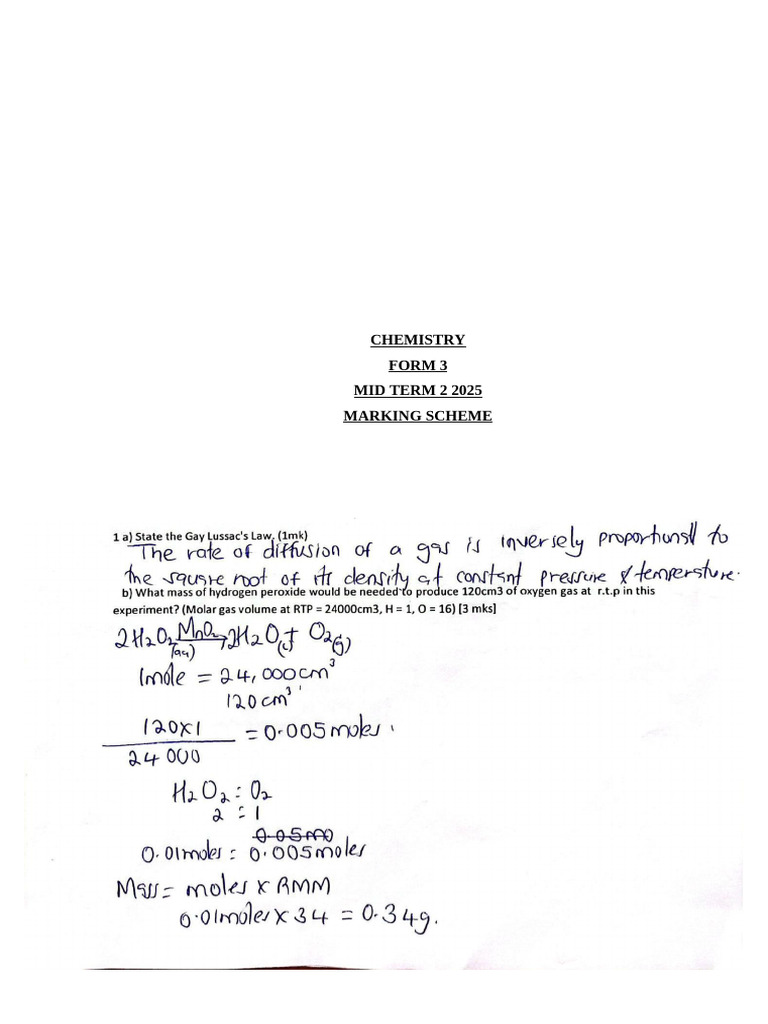 CHEMISTRY
FORM 3
MID TERM 2 2025
MARKING SCHEME
1 a) State the Gay Lussac's Law. (1mk)
The rate of diffusion of a gas is inversely proportional to
the square root of its density at constant pressure & temperature.
b) What mass of hydrogen peroxide would be needed to produce 120cm3 of oxygen gas at r.t.p in this
experiment? (Molar gas volume at RTP = 24000cm3, H = 1, O = 16) [3 mks]
2H₂O₂(aq) MnO₂→ 2H₂O(l) + O₂(g)
1mole = 24,000cm³
120cm³
120x1
24000 = 0.005moles.
H₂O₂ : O₂
2 : 1
0.05mo
0.01moles = 0.005moles
Mass = moles x RMM
0.01moles x 34 = 0.34g.